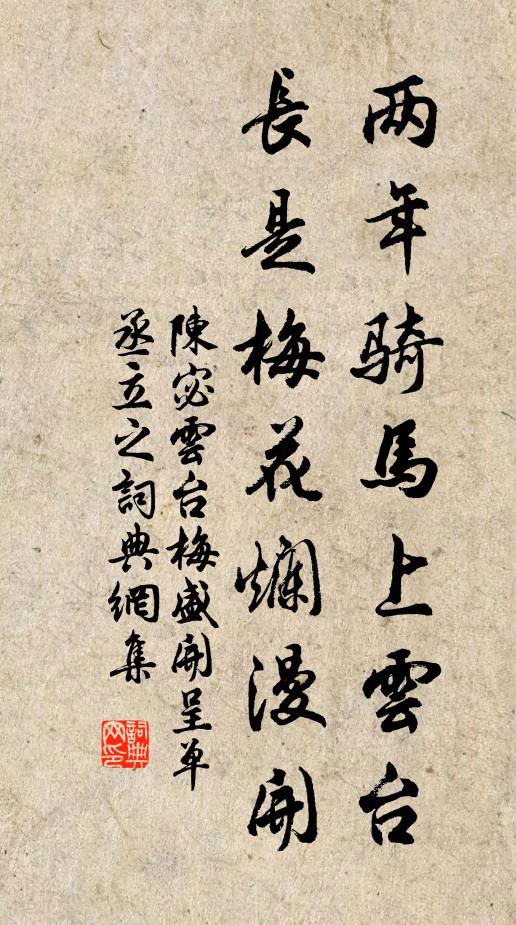 两年骑馬上雲台
長是梅花爛漫開
陳宓雲台梅盛開呈单
丞立之詞典網集
詞典
网印